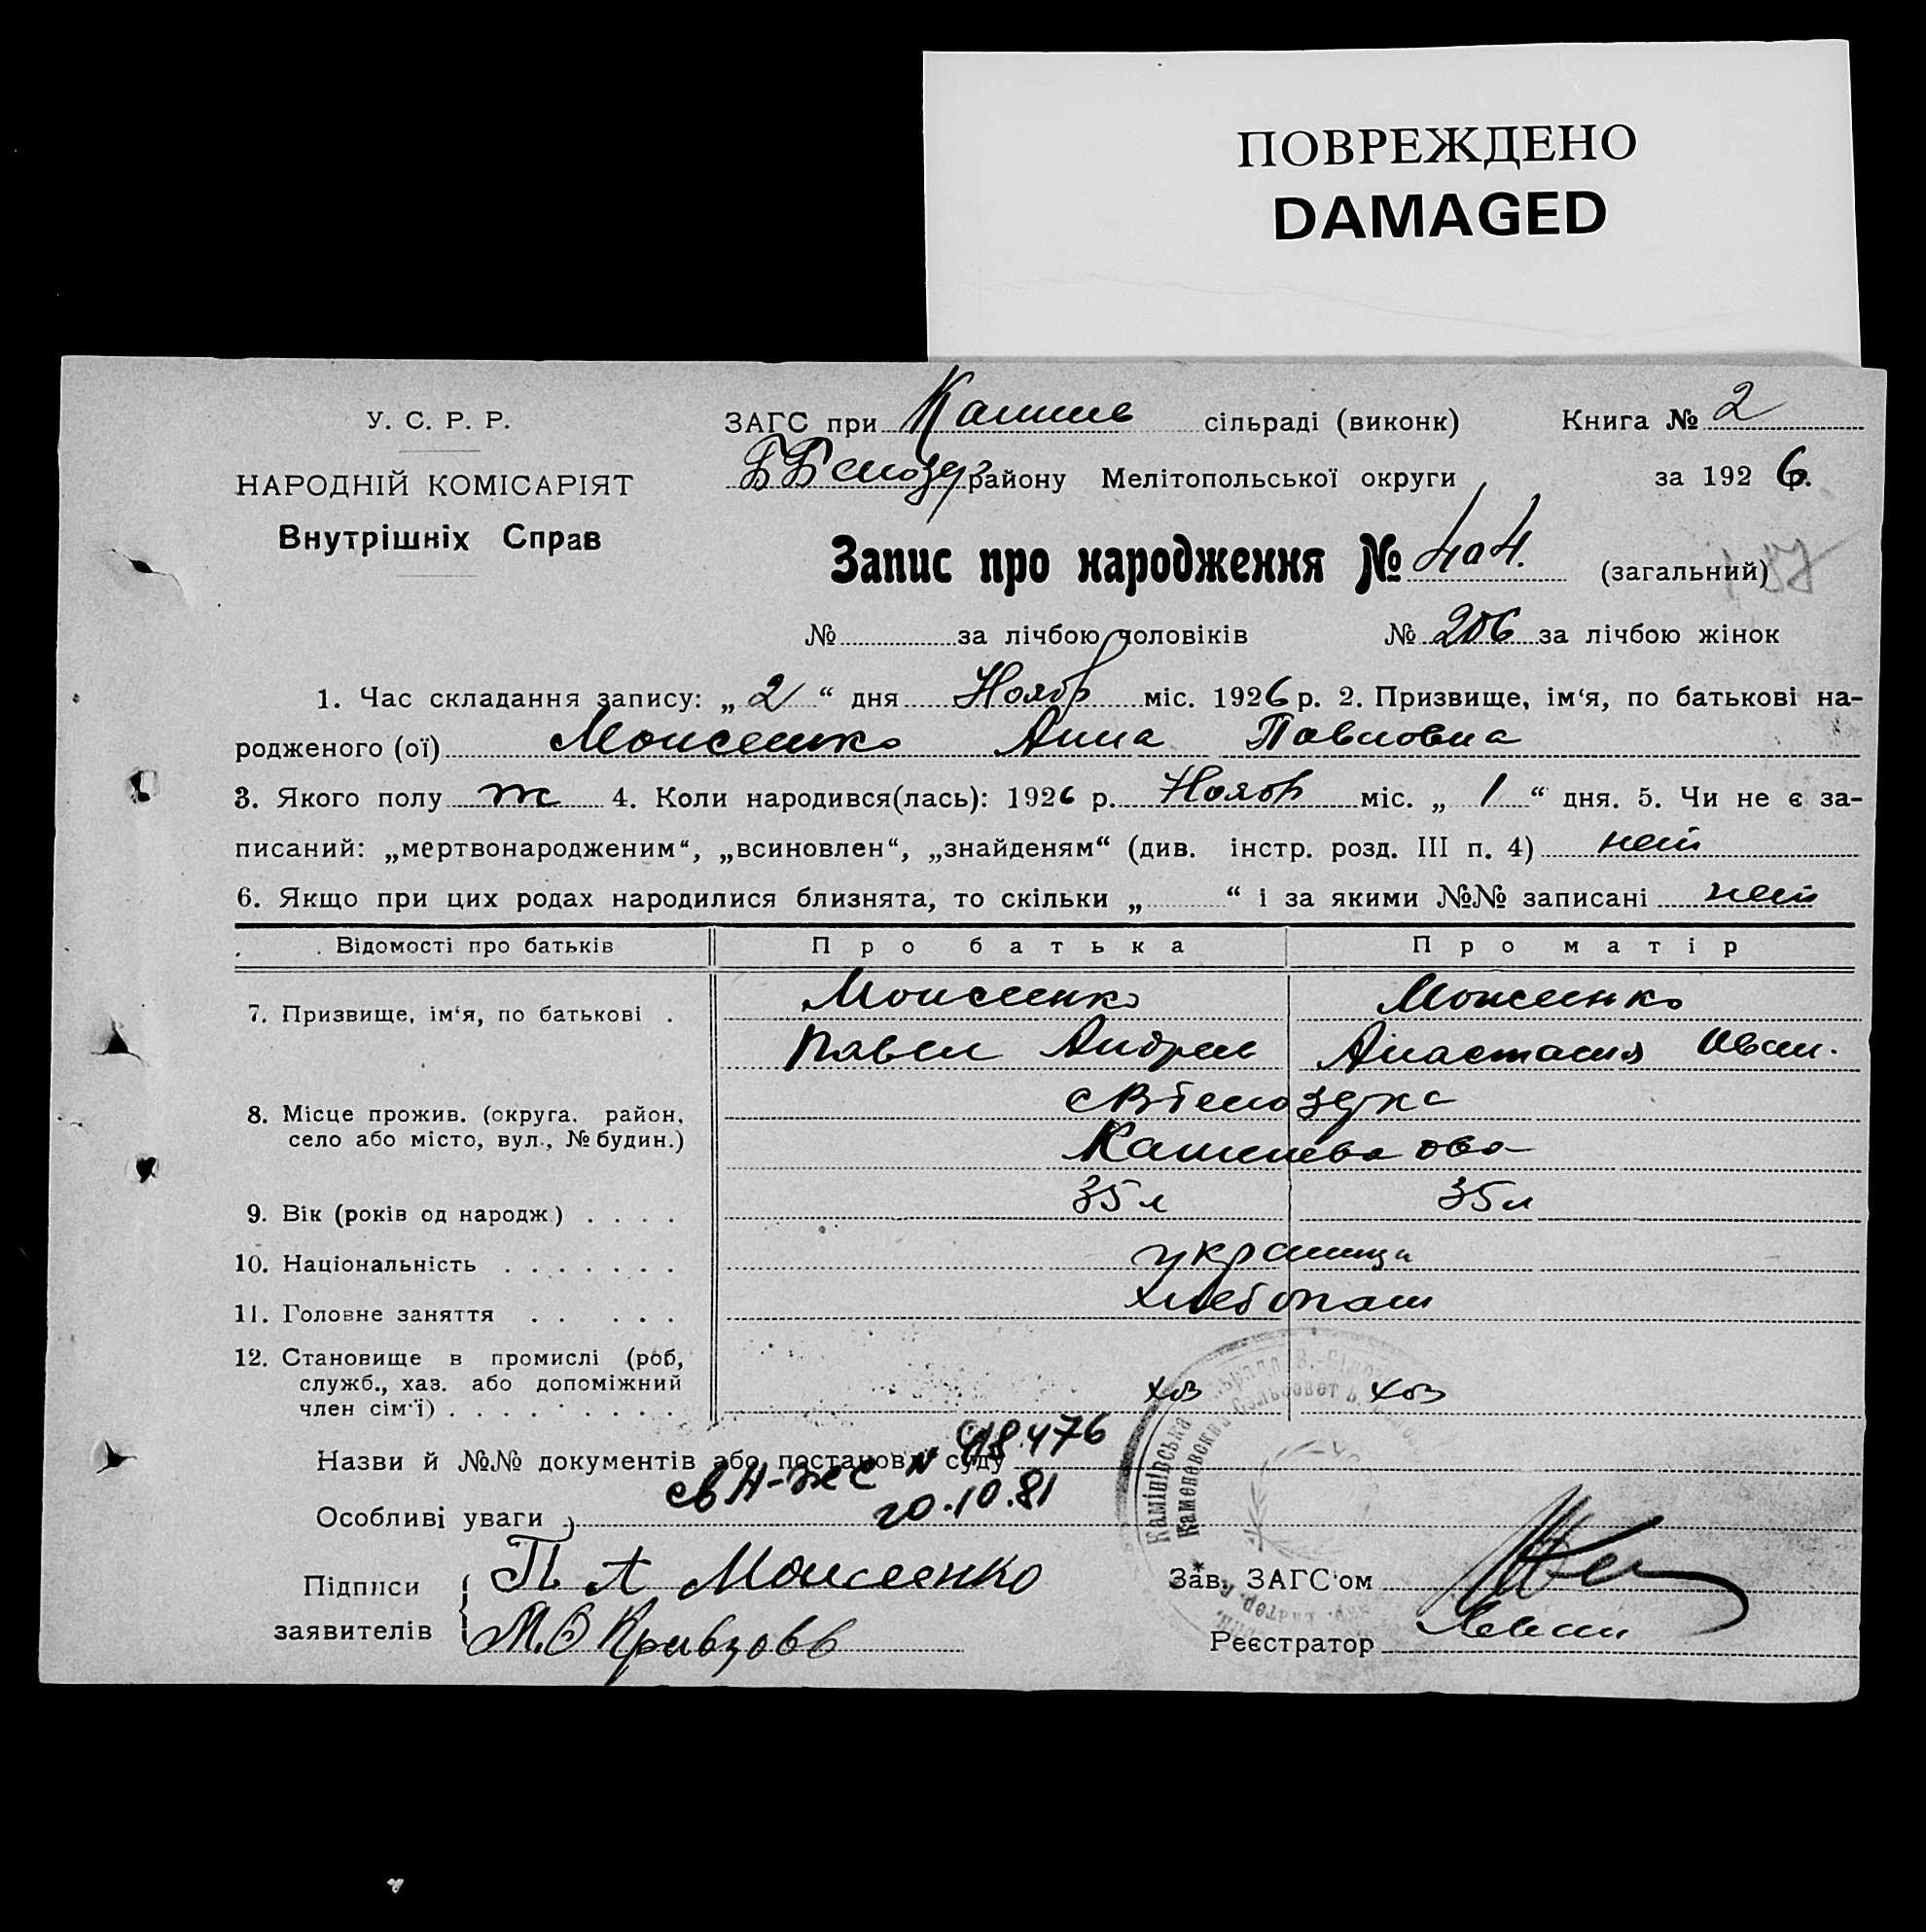 ПОВРЕЖДЕНО
DAMAGED
У. С. Р. Р.
НАРОДНІЙ КОМІСАРІЯТ
Внутрішніх Справ
ЗАГС при сільраді (виконк) Книга № 2
району Мелітопольської округи за 1926 р.
Запис про народження № 404. (загальний)
№ за лічбою чоловіків № 206 за лічбою жінок
1. Час складання запису: „2“ дня Ноябр міс. 1926 р. 2. Призвище, ім‘я, по батькові на-
родженого (ої) Моисеенко Анна Павловна
3. Якого полу ж 4. Коли народився(лась): 1926 р. Ноябр міс. „1“ дня. 5. Чи не є за-
писаний: „мертвонародженим“, „всиновлен“, „знайденям“ (див. інстр. розд. III п. 4) нет
6. Якщо при цих родах народилися близнята, то скільки „ “ і за якими №№ записані нет
Відомості про батьків Про батька Про матір
7. Призвище, ім‘я, по батькові . Моисеенко Моисеенко
Павел Андрее Анастасия Иван.
8. Місце прожив. (округа, район,
село або місто, вул., № будин.)
9. Вік (років од народж) . . . . 35 л 35 л
10. Національність . . . . . . . украинца
11. Головне заняття . . . . . хлебопаш
12. Становище в промислі (роб,
служб., хаз. або допоміжний
член сім‘ї) . . . . . . . . . хоз хоз
Назви й №№ документів або постанови суду
св Н-ЖС № 418476
20.10.81
Особливі уваги
Підписи П А Моисеенко Зав. ЗАГС‘ом
заявителів М.О Кривзовв Реєстратор
Камінівська
Каменевский Сельсовет